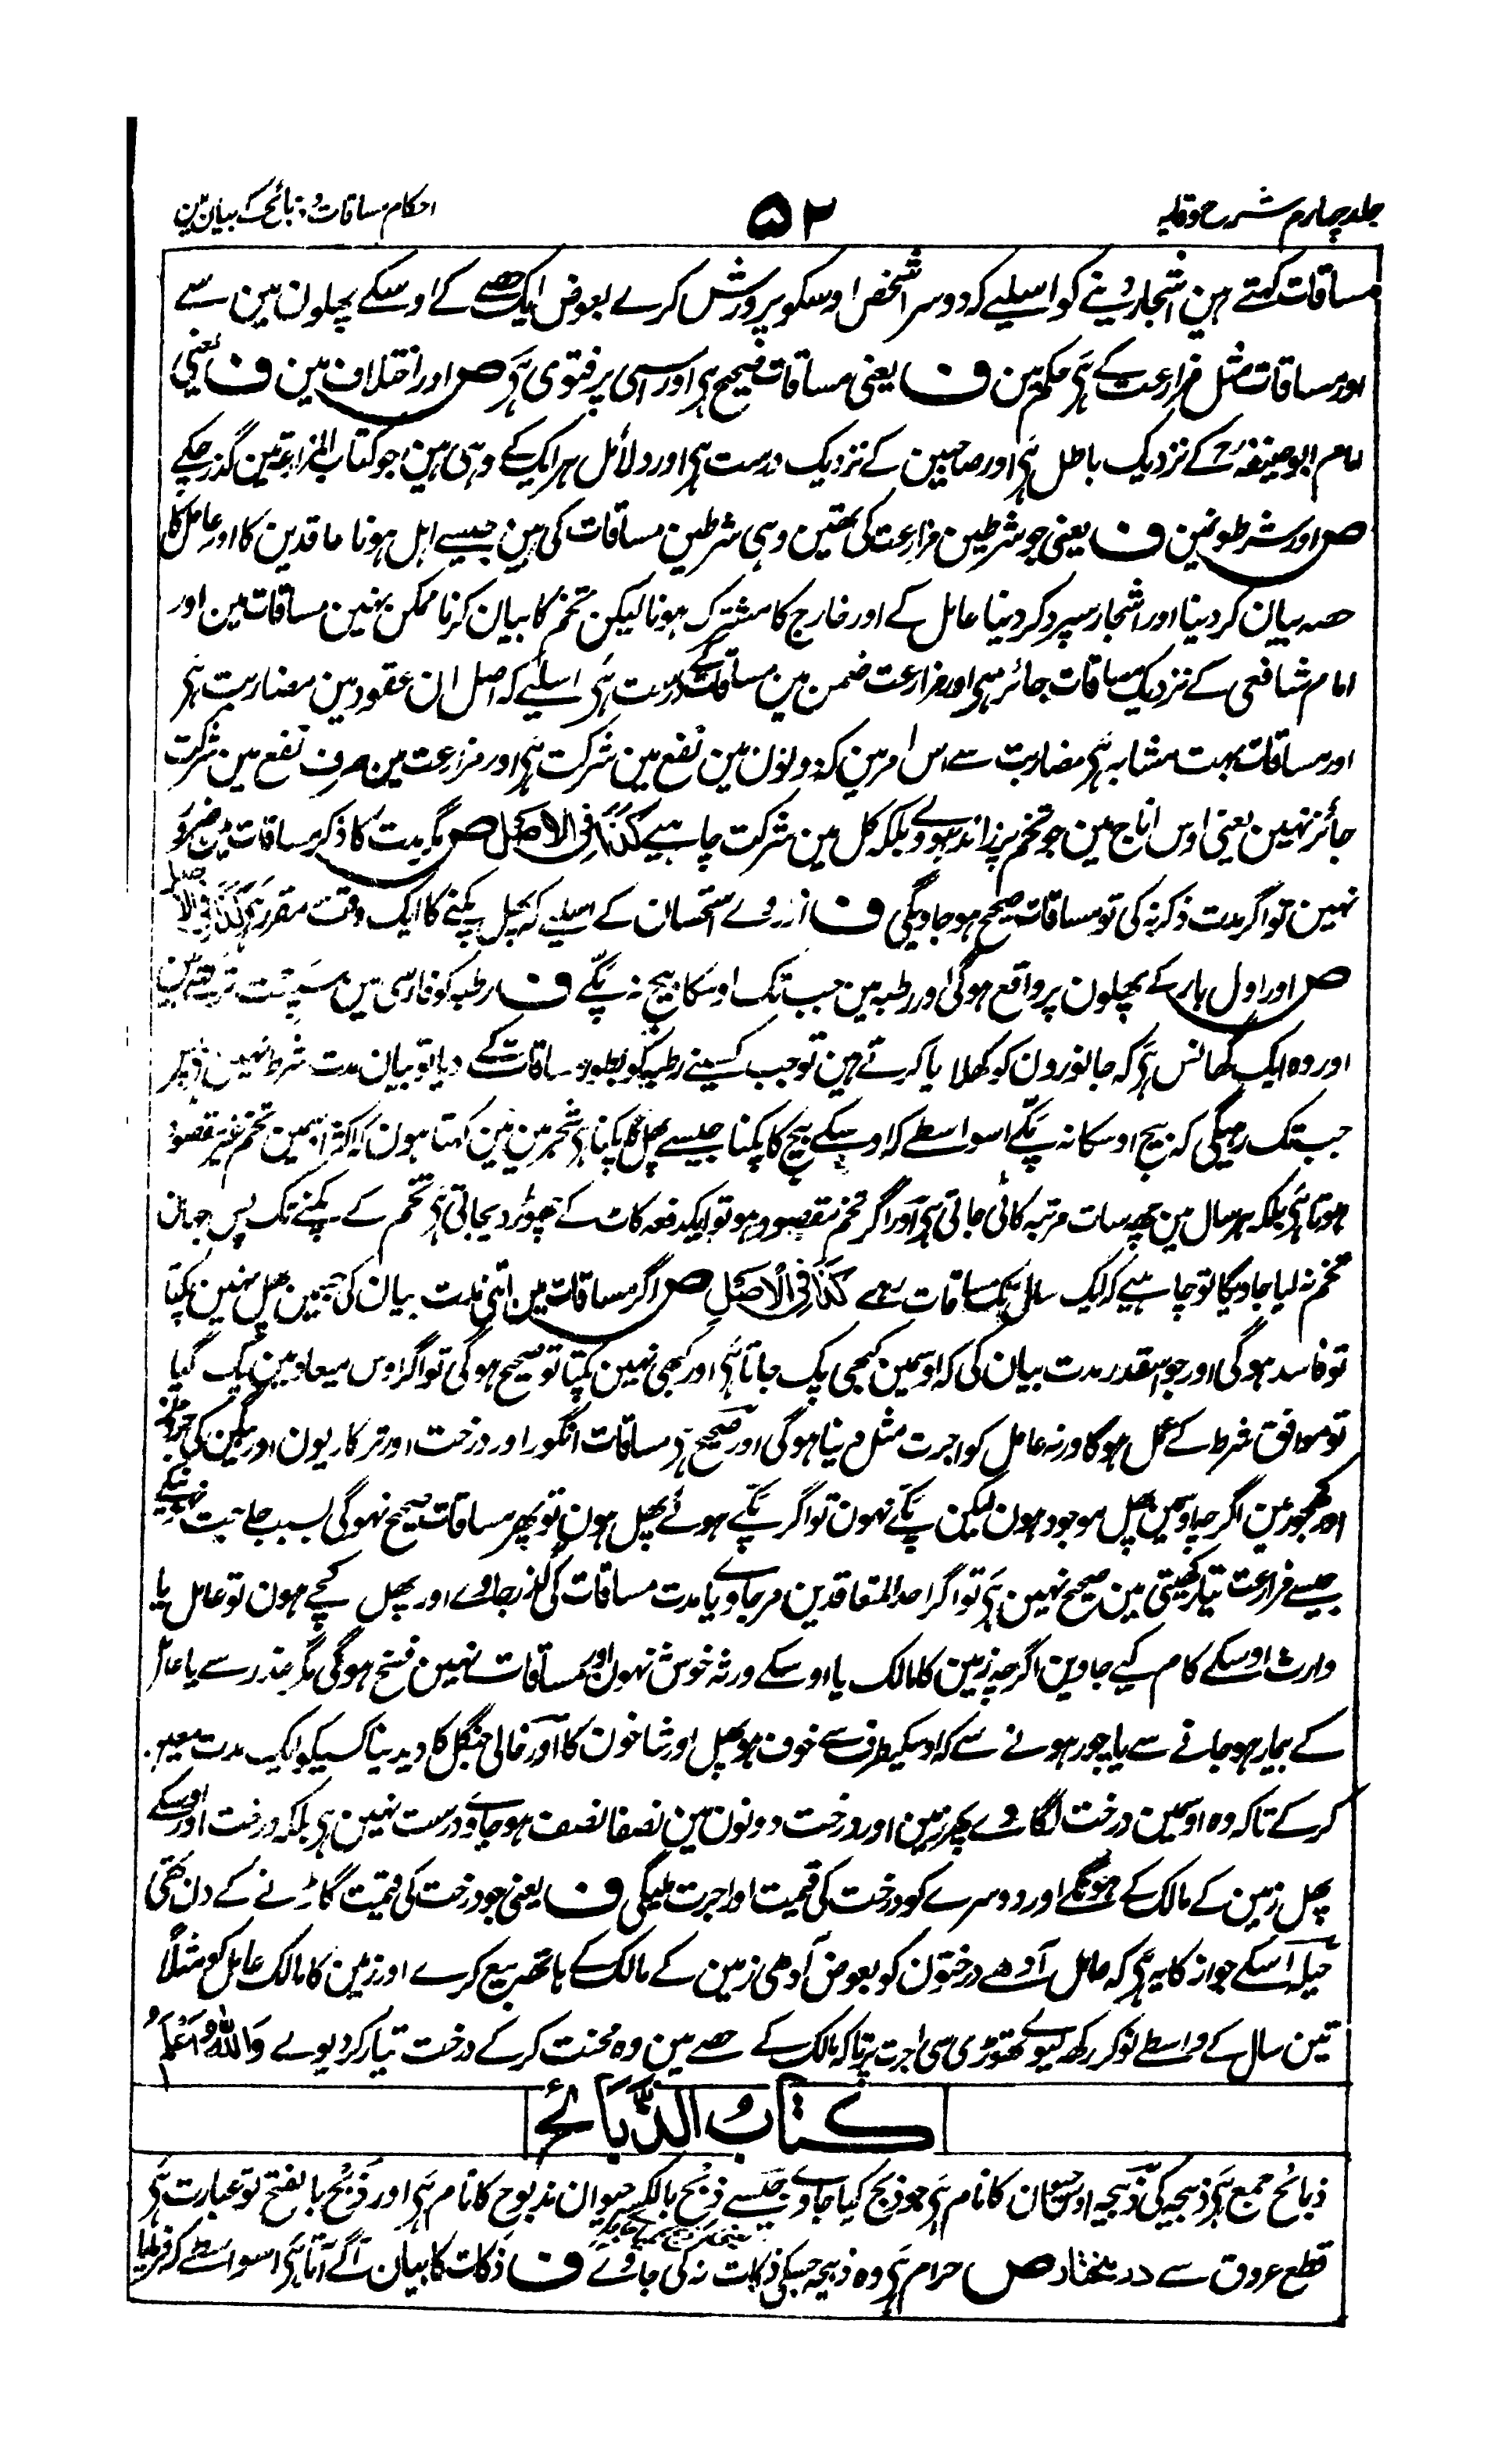 جلد چہارم شرح وقایہ
۵۲
احکام مساقات و ذبائح کے بیان مین
مساقات کہتے ہین اشجار دینے کو اسلیے کہ دوسرا شخص اوسکو پرورش کرے بعوض ایک حصے کے اوسکے پھلون مین سے
اور مساقات مثل مزارعت کے ہی حکم مین ف یعنی مساقات صحیح ہی اور اسی پر فتوی ہی ص اور اختلاف مین ف یعنی
امام ابو حنیفہؒ کے نزدیک باطل ہی اور صاحبین کے نزدیک درست ہی اور دلائل ہر ایک کے وہی ہین جو کتاب المزارعۃ مین گذر چکے
ص اور شرطونمین ف یعنی جو شرطین مزارعت کی تھین وہی شرطین مساقات کی ہین جیسے اہل ہونا عاقدین کا اور عامل کا
حصہ بیان کر دینا اور اشجار سپرد کر دینا عامل کے اور خارج کا مشترک ہونا لیکن تخم کا بیان کرنا ممکن نہین مساقات مین اور
امام شافعی کے نزدیک مساقات جائز ہی اور مزارعت ضمن مین مساقات کے درست ہی اسلیے کہ اصل ان عقود مین مضاربت ہی
اور مساقات بہت مشابہ ہی مضاربت سے اس امر مین کہ دونون مین نفع مین شرکت ہی اور مزارعت مین صرف نفع مین شرکت
جائز نہین یعنی اوس اناج مین جو تخم پر زائد ہووے بلکہ کل مین شرکت چاہیے کَذَا فِی الْاَصْلِ ص مگر مدت کا ذکر مساقات مین ضرور
نہین تو اگر مدت ذکر نہ کی تو مساقات صحیح ہو جاویگی ف ازروے استحسان کے اسلیے کہ پھل پکنے کا ایک وقت مقرر ہی کَذَا فِی الْاَصْلِ
ص اور اول بار کے پھلون پر واقع ہوگی اور رطبہ مین جب تک اوسکا بیج نہ پکے ف رطبہ کو فارسی مین سپست کہتے ہین
اور وہ ایک گھانس ہی کہ جانورون کو کھلایا کرتے ہین تو جب کسینے رطبہ کو بطور مساقات کے دیا تو بیان مدت شرط نہین
جب تک رہیگی کہ بیج اوسکا نہ پکے اسواسطے کہ اوسکے بیج کا پکنا جیسے پھل کا پکنا ہی شجر مین مین کہتا ہون کہ اکثر اسمین تخم غیر مقصود
ہوتا ہی بلکہ ہر سال مین چھ سات مرتبہ کاٹی جاتی ہی اور اگر تخم مقصود ہو تو ایکدفعہ کاٹ کے چھوڑ دیجاتی ہی تخم کے پکنے تک پس جہان
تخم نہ لیا جاویگا تو چاہیے کہ ایک سال تک مساقات رہے کَذَا فِی الْاَصْلِ ص اگر مساقات مین اتنی مدت بیان کی جسمین پھل نہین پکتا
تو فاسد ہوگی اور جو اسقدر مدت بیان کی کہ اوسمین کبھی پک جاتا ہی اور کبھی نہین پکتا تو صحیح ہوگی تو اگر اوس میعاد مین پک گیا
تو موافق شرط کے عمل ہوگا ورنہ عامل کو اجرت مثل دینا ہوگی اور صحیح ہی مساقات انگور اور درخت اور ترکاریون اور بیگن کی جڑونمین
اور کھجور مین اگرچہ اوسمین پھل موجود ہون لیکن پکے نہون تو اگر پکے ہوئے پھل ہون تو پھر مساقات صحیح نہوگی بسبب حاجت نہونیکے
جیسے مزارعت تیار کھیتی مین صحیح نہین ہی تو اگر احد المتعاقدین مر جاوے یا مدت مساقات کی گذر جاوے اور پھل کچے ہون تو عامل یا
وارث اوسکے کام کیے جاوین اگرچہ زمین کا مالک یا اوسکے ورثہ خوش نہون اور مساقات نہین فسخ ہوگی مگر عذر سے یا عامل
کے بیمار ہو جانے سے یا چور ہونے سے کہ اوسکیطرف سے خوف ہو پھل اور شاخون کا اور خالی جنگل کا دیدینا کسیکو ایک مدت معین
کرکے تاکہ وہ اوسمین درخت لگاوے پھر زمین اور درخت دونون مین نصفا نصف ہو جاوے درست نہین ہی بلکہ درخت اور اوسکے
پھل زمین کے مالک کے ہونگے اور دوسرے کو درخت کی قیمت اور اجرت ملیگی ف یعنی جو درخت کی قیمت گاڑنے کے دن تھی
حیلہ اسکے جواز کا یہ ہی کہ عامل آدھے درختون کو بعوض آدھی زمین کے مالک کے ہاتھ بیع کرے اور زمین کا مالک عامل کو مثلاً
تین سال کے واسطے نوکر رکھ لیوے تھوڑی سی اجرت پر تاکہ مالک کے حصے مین وہ محنت کرکے درخت تیار کر دیوے وَاللّٰهُ اَعْلَمُ
کتاب الذبائح
ذبائح جمع ہی ذبیحہ کی ذبیحہ اوس حیوان کا نام ہی جو ذبح کیا جاوے جیسے ذِبح بالکسر حیوان مذبوح کا نام ہی اور ذَبح بالفتح تو عبارت ہی
قطع عروق سے در مختار ص حرام ہی وہ ذبیحہ جسکی ذکات نہ کی جاوے ف ذکات کا بیان آگے آتا ہی اسواسطے کہ فرمایا